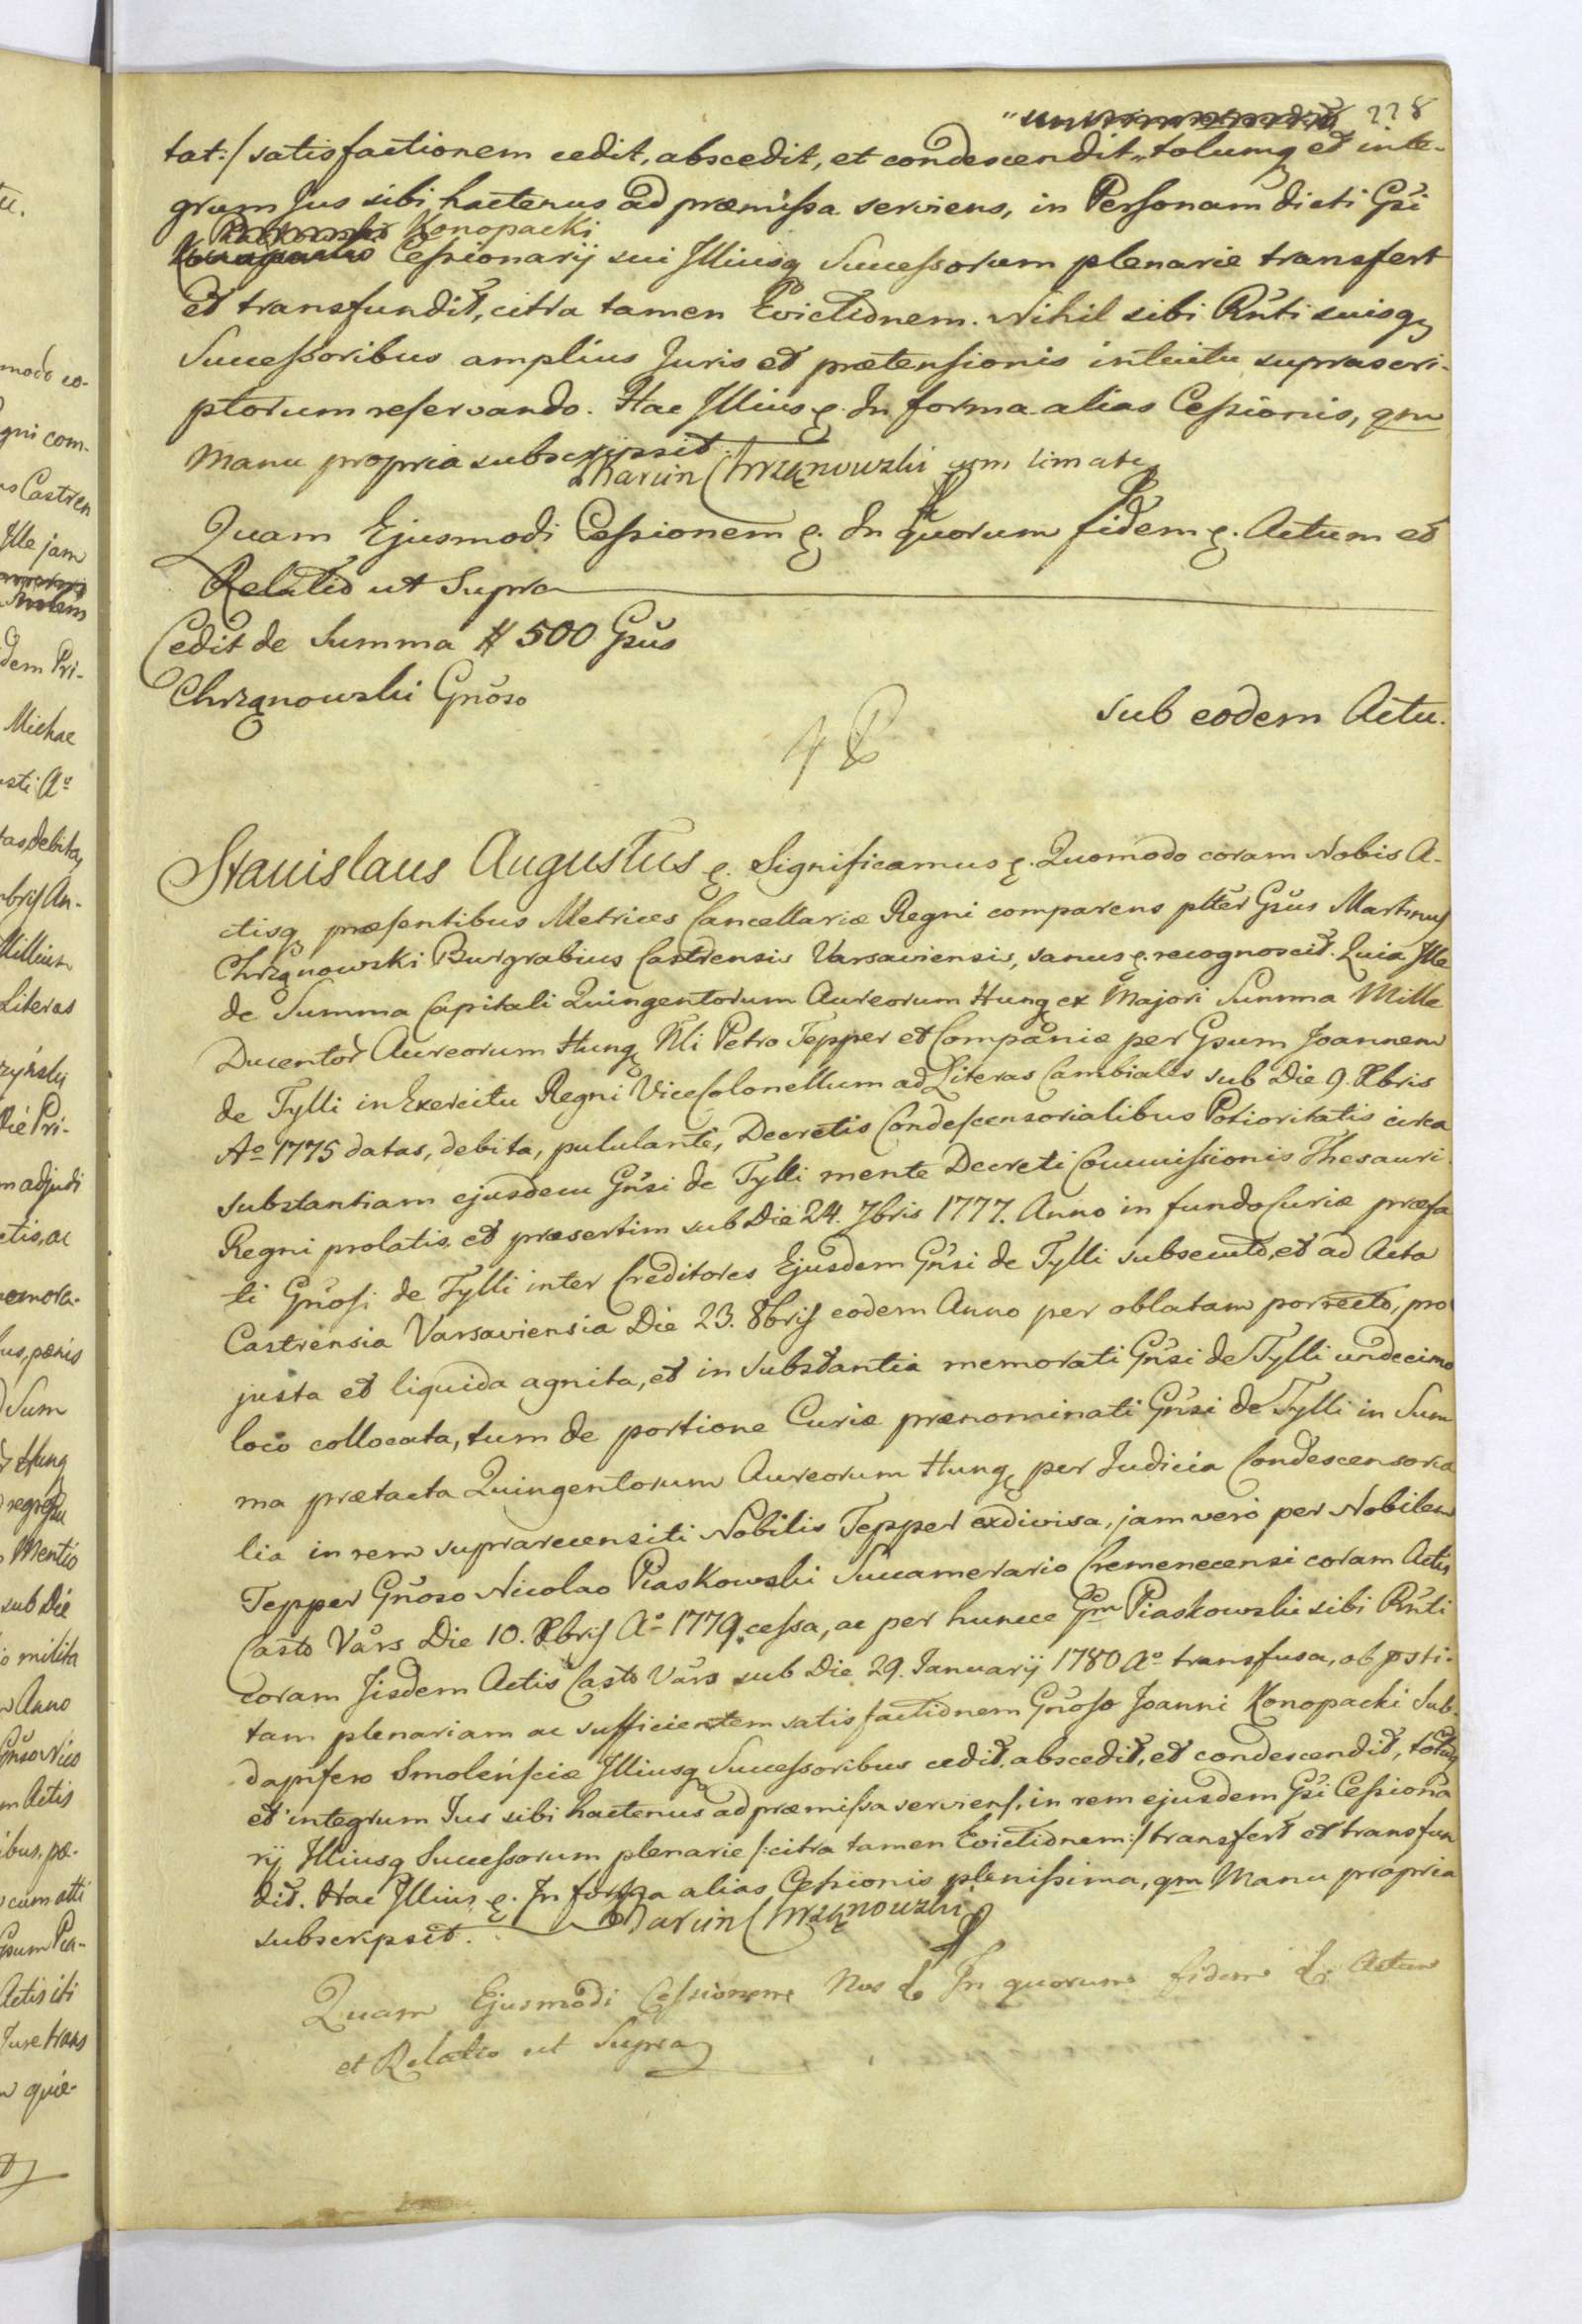 228
tat:/ satisfactionem cedit, abscedit, et condescendit, totumq et inte-
grum Jus sibi hactenus ad præmissa serviens, in Personam dicti Gsi
Konopacki
Cessionarij sui Illiusq Successorum plenarie transfert
et transfundit, citra tamen Evictionem. Nihil sibi Rnti suisq
Successoribus amplius Juris et prætensionis intuitu suprascri-
ptorum reservando. Hac Illius &. In forma alias Cessionis, qm
Manu propria subscripsit.
Marcin Chrzanowski
Quam Ejusmodi Cessionem &. In quorum fidem &. Actum et
Relatio ut Supra
Cedit de Summa # 500 Gsus
Chrząnowski Gnoso
Sub eodem Actu.
Stanislaus Augustus &. Significamus &. Quomodo coram Nobis A-
ctisq præsentibus Metrices Cancellariæ Regni comparens plter Gsus Martinus
Chrząnowski Burgrabius Castrensis Varsaviensis, sanus &. recognoscit. Quia Ille
de Summa Capitali Quingentorum Aureorum Hung ex Majori Summa Mille
Ducentor Aureorum Hung Nli Petro Tepper et Companiæ per Gsum Joannem
de Tylli in Exercitu Regni ViceColonellum ad Literas Cambiales sub Die 9. Xbris
Ao 1775 datas, debita, pululanti, Decretis Condescensorialibus Potioritatis circa
substantiam ejusdem Gnsi de Tylli mente Decreti Commissionis Thesauri
Regni prolatis, et præsertim sub Die 24. 7bris 1777. Anno in fundo Curiæ præfa
ti Gnosi de Tylli inter Creditores Ejusdem Gnsi de Tylli subsecuto, et ad Acta
Castrensia Varsaviensia Die 23. 8bris eodem Anno per oblatam porrecto, pro
justa et liquida agnita, et in substantia memorati Gnsi de Tylli undecimo
loco collocata, tum de portione Curiæ prænominati Gnsi de Tylli in Sum
ma prætacta Quingentorum Aureorum Hung per Judicia Condescensoria
lia in rem suprarecensiti Nobilis Tepper exdivisa, jam vero per Nobilem
Tepper Gnoso Nicolao Piaskowski Succamerario Cremenecensi coram Actis
Casto Vars Die 10. Xbris Ao 1779 cessa, ac per huncce Gsm Piaskowski sibi Rnti
coram Iisdem Actis Casto Vars sub Die 29. Januarij 1780 Ao transfusa, ob psti-
tam plenariam ac sufficientem satisfactionem Gnoso Joanni Konopacki Sub-
dapifero Smolensciæ Illiusq Successoribus cedit, abscedit, et condescendit, totumq
et integrum Jus sibi hactenus ad præmissa serviens, in rem ejusdem Gsi Cessiona
rij Illiusq Successorum plenarie /:citra tamen Evictionem:/ transfert et transfun
dit. Hac Illius &. In forma alias Cessionis plenissima, qm Manu propria
subscripsit.
Marcin Chrzanowski
Quam Ejusmodi Cessionem Nos & In quorum fidem &. Actum
et Relatio ut Supra